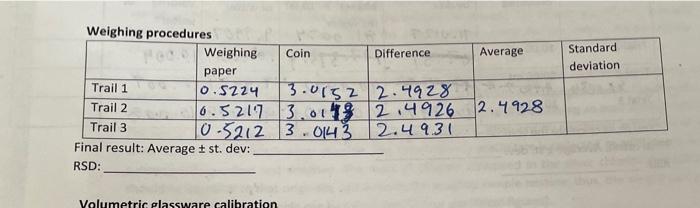 Weighing procedures
Weighing paper Coin Difference Average Standard deviation
Trail 1 0.5224 3.0152 2.4928
Trail 2 0.5217 3.0143 2.4926 2.4928
Trail 3 0.5212 3.0143 2.4931
Final result: Average ± st. dev:
RSD:
Volumetric glassware calibration